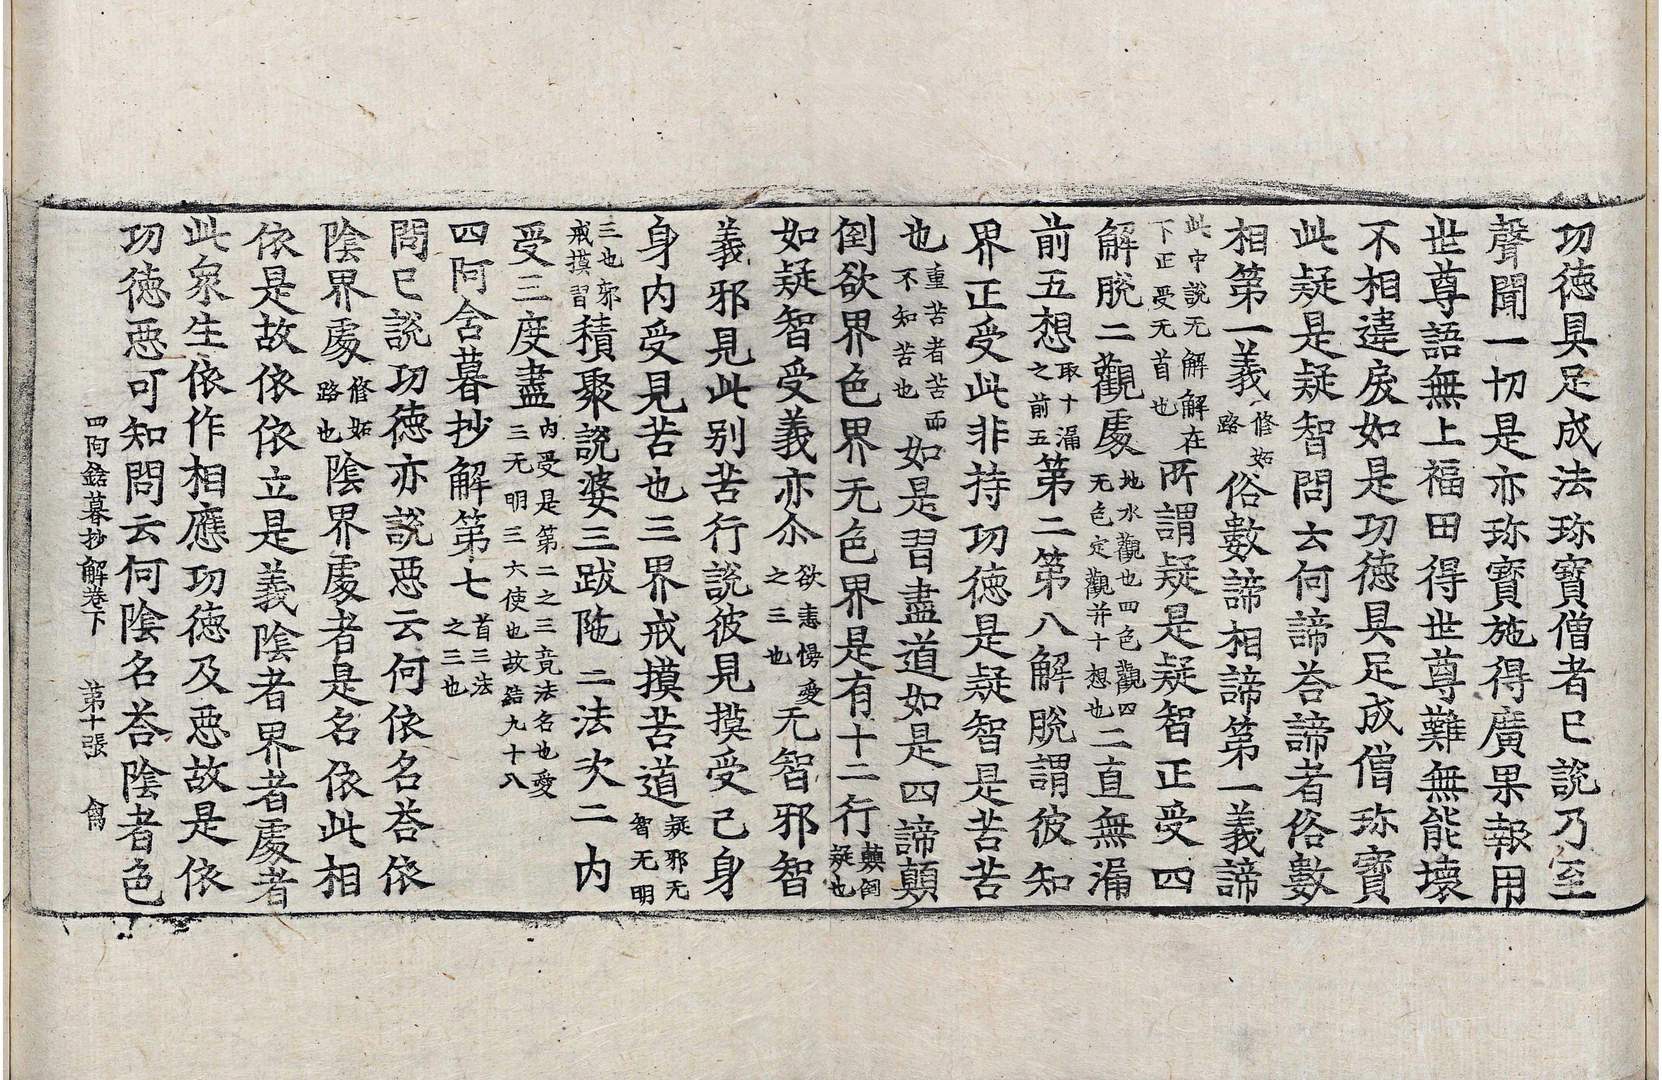 功徳具足成法珎寶僧者已說乃至
聲聞一切是亦珎寶施得廣果報用
世尊語無上福田得世尊難無能壞
不相違戾如是功徳具足成僧珎寶
此疑是疑智問云何諦荅諦者俗數
相第一義修妬路俗數諦相諦第一義諦
此中說无解解在下正受无首也所謂疑是疑智正受四
解脫二觀䖏地水觀也四色觀四无色定觀并十想也二直無漏
前五想取十漏之前五第二第八解脫謂彼知
界正受此非持功徳是疑智是苦苦
也重苦者苦而不知苦也如是習盡道如是四諦顛
倒欲界色界无色界是有十二行顛倒疑也
如疑智受義亦尒欲恚愣愛之三也无智邪智
義邪見此別苦行說彼見摸受己身
身內受見苦也三界戒摸苦道疑邪无智无明
三也郭戒摸習積聚說婆三跋陁二法次二內
受三度盡內受是第二之三竟法名也愛三无明三六使也故結九十八
四阿含暮抄解第七首三法之三也
問已說功徳亦說惡云何依名荅依
陰界䖏修妬路也陰界䖏者是名依此相
依是故依依立是義陰者界者䖏者
此衆生依作相應功徳及惡故是依
功徳惡可知問云何陰名荅陰者色
四阿鋡暮抄解卷下 第十張 禽